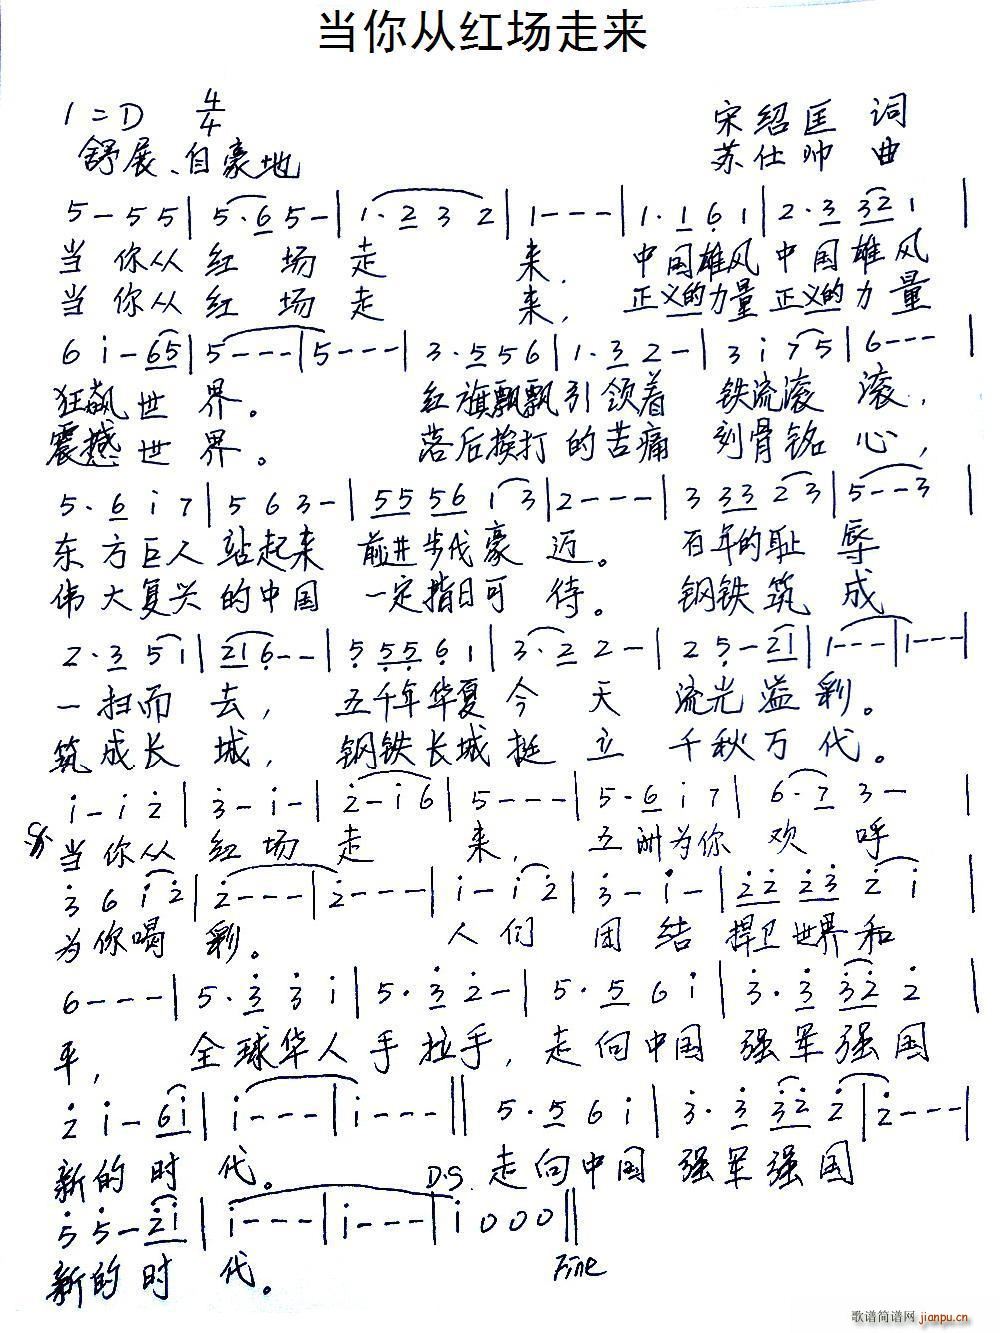 当你从红场走来
1=D 4/4 宋绍匡 词
舒展、自豪地 苏仕帅 曲
5 - 5 5 | 5· 6 5 - | 1· 2 3 2 | 1 - - - | 1· 1 6 1 | 2· 3 3 2 1 |
当 你从 红 场 走 来, 中国雄风 中国雄风
当 你从 红 场 走 来, 正义的力量 正义的力量
6 i - 6 5 | 5 - - - | 5 - - - | 3· 5 5 6 | 1· 3 2 - | 3 i 7 5 | 6 - - - |
狂飙 世 界。 红旗飘飘引领着 铁流滚 滚,
震撼 世 界。 落后挨打的苦痛 刻骨铭 心,
5· 6 i 7 | 5 6 3 - | 5 5 5 6 1 3 | 2 - - - | 3 3 3 2 3 | 5 - - 3 |
东方巨人 站起来 前进步伐豪 迈。 百年的耻 辱
伟大复兴的中国 一定指日可 待。 钢铁筑 成
2· 3 5 1 | 2 1 6 - - | 5 5 5 6 1 | 3· 2 2 - | 2 5 - 2 1 | 1 - - - | 1 - - - |
一扫而 去, 五千年华夏今 天 流光溢彩。
筑成长 城, 钢铁长城挺 立 千秋万代。
i - i 2 | 3 - i - | 2 - i 6 | 5 - - - | 5· 6 i 7 | 6· 7 3 - |
当 你从 红 场 走 来, 五洲为你 欢 呼
3 6 i 2 | 2 - - - | 2 - - - | i - i 2 | 3 - i - | 2 2 2 3 2 i |
为你喝 彩。 人们 团结 捍卫世界和
6 - - - | 5· 3 3 i | 5· 3 2 - | 5· 5 6 i | 3· 3 3 2 2 |
平, 全球华人手拉手, 走向中国 强军强国
2 i - 6 i | i - - - | i - - - || 5· 5 6 i | 3· 3 3 2 2 | 2 - - - |
新的 时 代。 D.S. 走向中国 强军强国
5 5 - 2 i | i - - - | i - - - | i 0 0 0 ||
新的 时 代。 Fine
歌谱简谱网 jianpu.cn